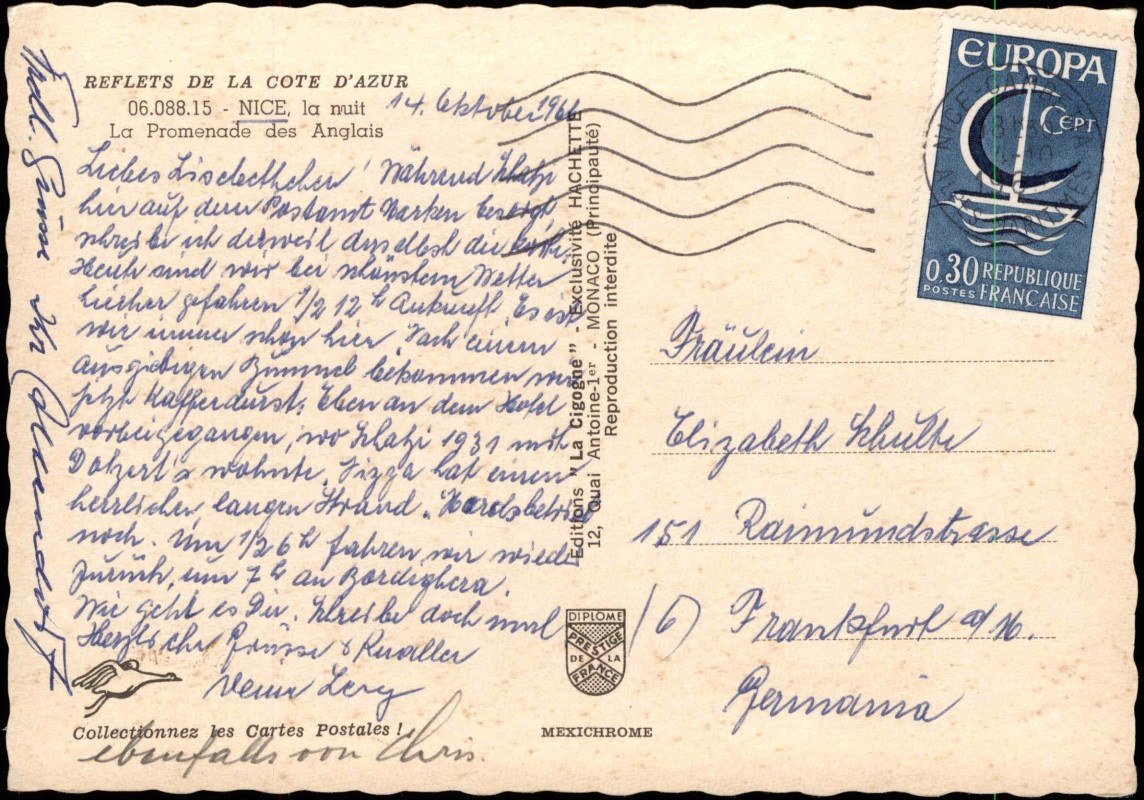 REFLETS DE LA COTE D'AZUR
06.088.15 - NICE, la nuit
La Promenade des Anglais
14. Oktober 1966
Liebes Lisbethchen! Während Schatzi
hier auf dem Postamt Marken besorgt
schreibe ich derweil daselbst die Karte.
Heute sind wir bei schönstem Wetter
hierher gefahren 1/2 12 h Ankunft. Es ist
wie immer schön hier. Nach einem
ausgiebigen Bummel bekommen wir
jetzt Kaffeedurst. Eben an dem Hotel
vorbeigegangen, wo Schatzi 1931 mit
wohnte. Nizza hat einen
herrlichen langen Strand.
noch. Um 1/2 6 h fahren wir wieder
zurück, um 7 h an Bordighera.
Wie geht es Dir. Schreibe doch mal
Herzliche Grüsse & Knaller
Deine
ebenfalls von Chris.
Grüsse Ihr
Collectionnez les Cartes Postales !
Editions "La Cigogne" - Exclusivité HACHETTE
12, Quai Antoine-1er - MONACO (Principauté)
Reproduction interdite
DIPLOME
PRESTIGE
DE LA
FRANCE
MEXICHROME
EUROPA
CEPT
0.30 REPUBLIQUE
POSTES FRANÇAISE
NICE-GAMBETTA
Fräulein
Elizabeth Schulte
151 Raimundstrasse
/6) Frankfurt a/M.
Germania